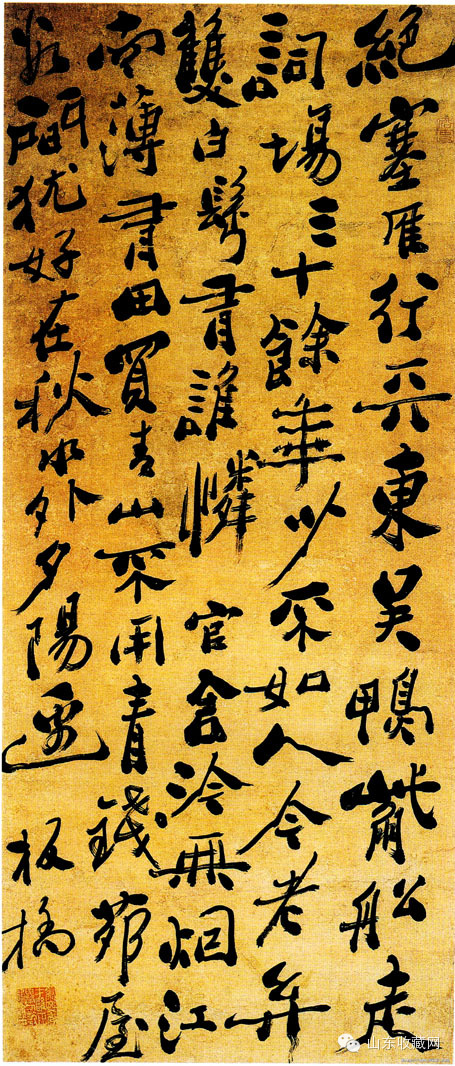 絕塞雁行天東吳鴨觜船走
詞場三十餘年少不如人今老矣
雙白鬢有誰憐 官舍冷無烟江
南薄有田買青山不用青錢茆屋
數間犹好在秋水外夕陽邊 板橋
山东收藏网